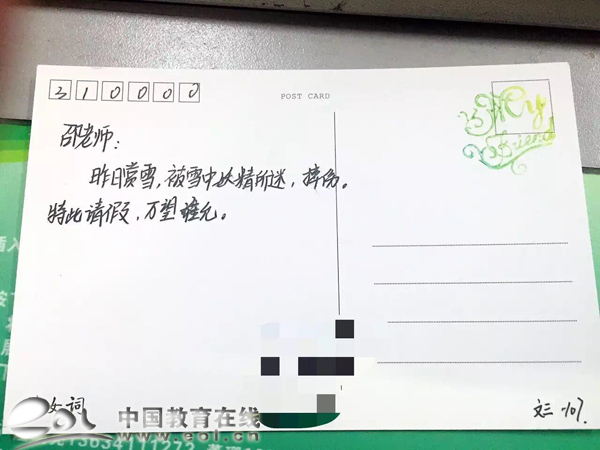 310000
POST CARD
My
Friend
邵老师：
昨日赏雪，被雪中妖精所迷，摔伤。
特此请假，万望准允。
女词
文三-107.
eol 中国教育在线
www.eol.cn
插入